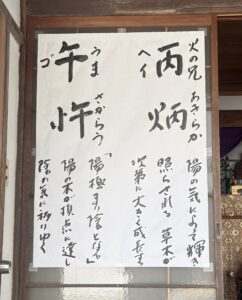 火の兄 あきらか
丙 炳
ヘイ
陽気によって輝き
照らされる 草木が
次第に大きく成長する
うま さからう
午 忤
ゴ
「陽極まり陰となる」
陽の木が頂点に達し
陰の気に移りゆく